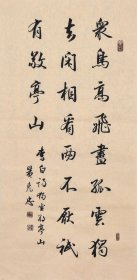 衆鳥高飛盡孤雲獨
去閑相看兩不厭祇
有敬亭山
李白詩獨坐敬亭山